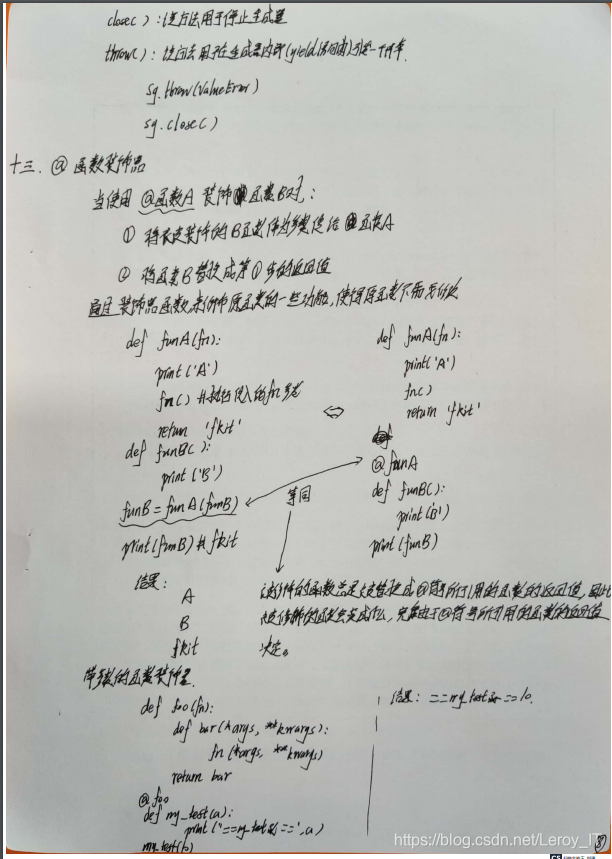 close():该方法用于停止生成器
throw():该方法用于在生成器内部(yield语句内)引发一个异常.
sg.throw(ValueError)
sg.close()
十三. @ 函数装饰器
当使用 @函数A 装饰 函数B时:
① 将被装饰的B函数作为参数传给 @函数A
② 将函数B替换成第①步的返回值
通过装饰器函数,来修饰原函数的一些功能,使得原函数不需要修改
def funA(fn):
print('A')
fn() #执行传入的fn参数
return 'fkit'
def funB():
print('B')
funB = funA(funB)
print(funB) # fkit
def funA(fn):
print('A')
fn()
return 'fkit'
@funA
def funB():
print('B')
print(funB)
等同
结果:
A
B
fkit
被修饰的函数总是被替换成@符号所引用的函数的返回值,因此
被修饰的函数会变成什么,完全由于@符号所引用的函数的返回值
决定。
带参的函数装饰器
def foo(fn):
def bar(*args, **kwargs):
fn(*args, **kwargs)
return bar
@foo
def my_test(a):
print("==my_test函数==",a)
my_test(10)
结果: ==my_test函数==10.
https://blog.csdn.net/Leroy_IT